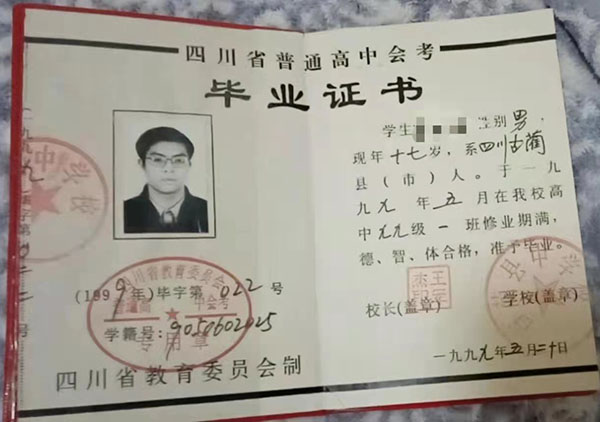 四川省普通高中会考
毕业证书
学生 性别男，
现年十七岁，系四川古蔺
县（市）人。于一九
九九年五月在我校高
中九九级一班修业期满，
德、智、体合格，准予毕业。
(1999年)毕字第022号
学籍号:9050602025
四川省教育委员会制
校长(盖章)
学校(盖章)
一九九九年五月二十日
四川省教育委员会
普通高中会考
专用章